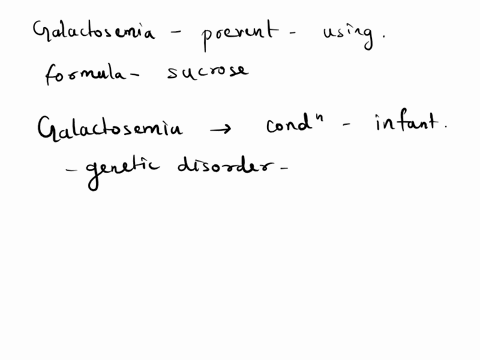 Galactosemia - prevent - using.
formula - sucrose
Galactosemia → condⁿ - infant.
- genetic disorder -